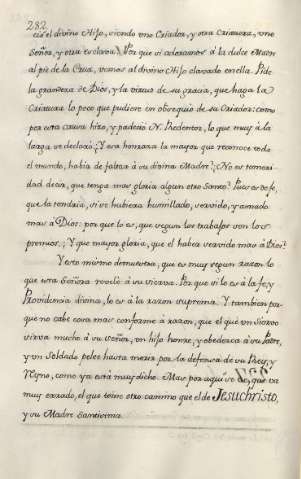 282
cis el divino Hijo, siendo uno Criador, y otra Criatura, uno
Señor, y otra esclava. Por que si adoramos à la dulce Madre
al piè de la Cruz, vemos al divino Hijo clavado en ella. Pide
la grandeza de Dios, y la virtud de su gracia, que haga la
Criatura lo poco que pudiere en obsequio de su Criador: como
por esta causa hizo, y padeciò N. Redentor, lo que muy à la
larga se declara; Y esa honraza la mayor que reconoce todo
el mundo, habia de faltar à su divina Madre? ¿No es temeri-
dad decir, que tenga mas gloria algun otro Santo? Pues es de fe,
que la tendria, si se hubiera humillado, servido, y amado
mas à Dios: por que lo es, que segun los trabajos son los
premios. ¿Y que mayor gloria, que el haber servido mas à Dios?
Y esto mismo demuestra, que es muy segun razon lo
que esta Señora revelò à su sierva. Por que si lo es à la fe, y
Providencia divina, lo es à la razon suprema. Y tambien por-
que no cabe cosa mas conforme à razon, que el que un Siervo
sirva mucho à su Señor, un hijo honre, y obedezca à su Padre,
y un Soldado pelee hasta morir por la defensa de su Rey, y
Reyno, como ya està muy dicho. Mas por aqui se ve, que va
muy errado, el que toma otro camino que el de Jesuchristo,
y su Madre Santisima.